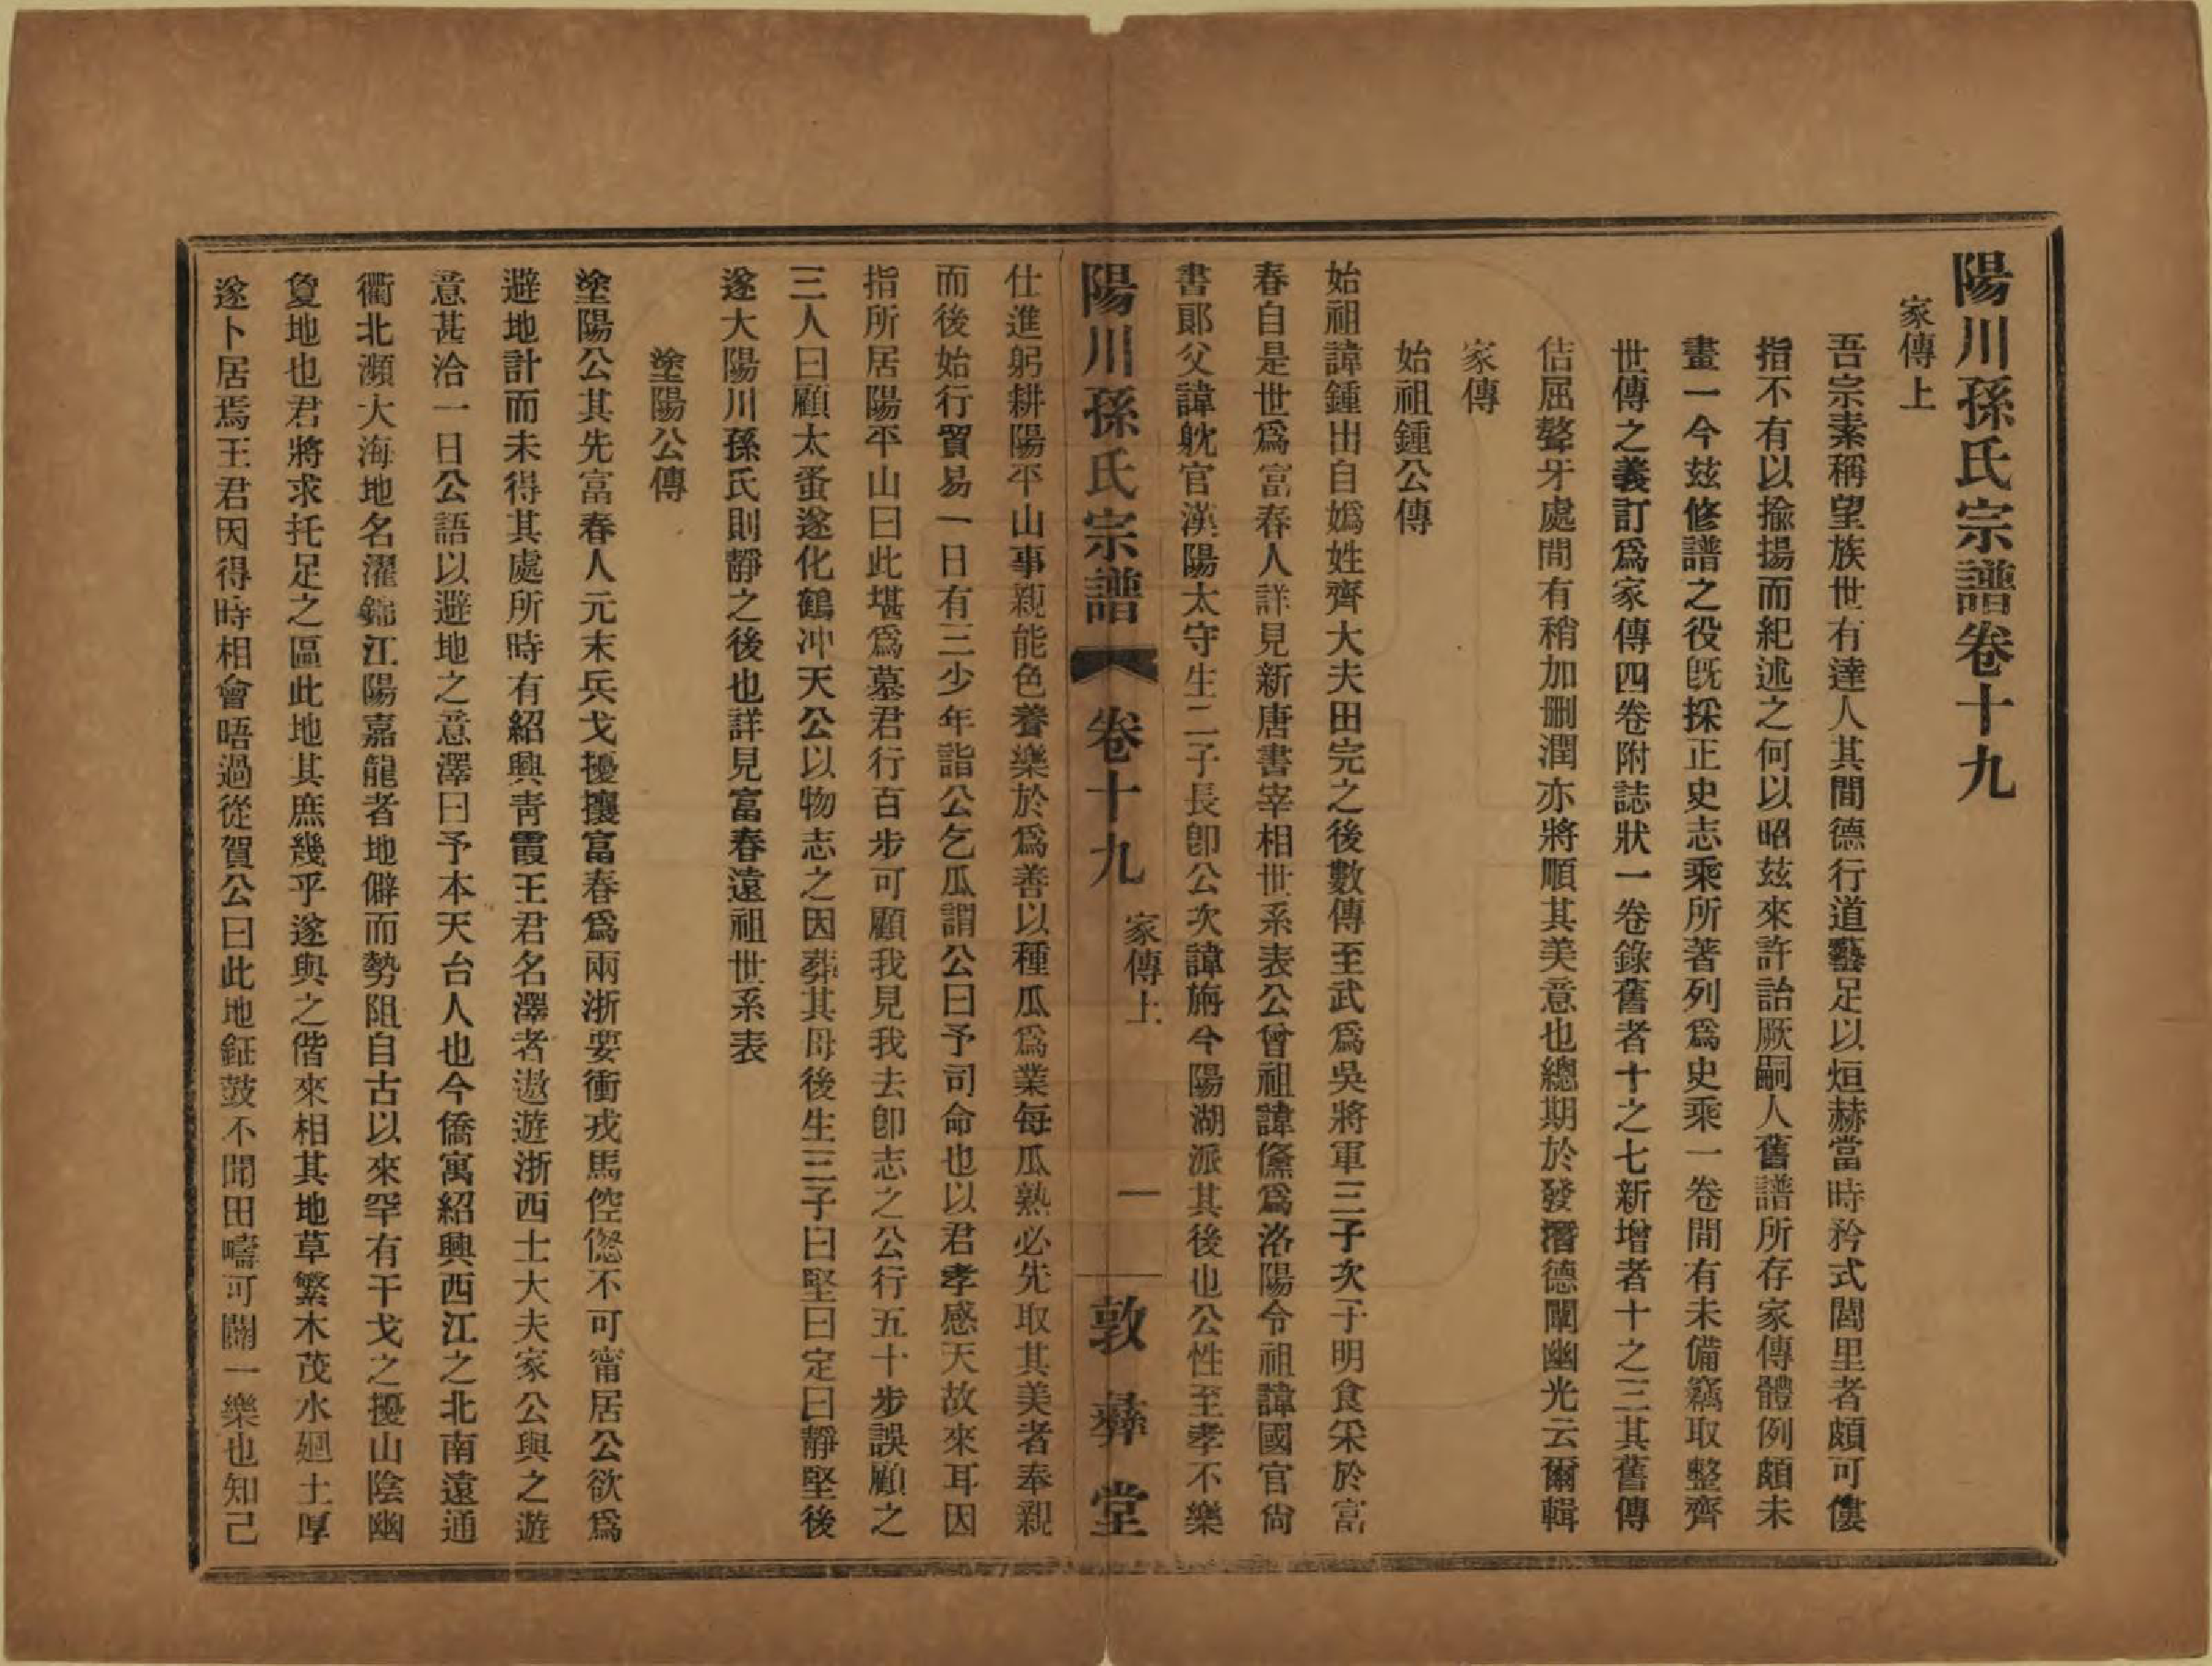 陽川孫氏宗譜卷十九
家傳上
吾宗素稱望族世有達人其間德行道藝足以烜赫當時矜式閭里者頗可僂
指不有以揄揚而紀述之何以昭茲來許詒厥嗣人舊譜所存家傳體例頗未
畫一今茲修譜之役旣採正史志乘所著列爲史乘一卷間有未備竊取整齊
世傳之義訂爲家傳四卷附誌狀一卷錄舊者十之七新增者十之三其舊傳
佶屈聱牙處間有稍加删潤亦將順其美意也總期於發潛德闡幽光云爾輯
家傳
始祖鍾公傳
始祖諱鍾出自嬀姓齊大夫田完之後數傳至武爲吳將軍三子次子明食采於富
春自是世爲富春人詳見新唐書宰相世系表公曾祖諱儵爲洛陽令祖諱國官尙
書郞父諱躭官漢陽太守生二子長卽公次諱旃今陽湖派其後也公性至孝不樂
陽川孫氏宗譜 卷十九 家傳上 一 敦彝堂
仕進躬耕陽平山事親能色養樂於爲善以種瓜爲業每瓜熟必先取其美者奉親
而後始行貿易一日有三少年詣公乞瓜謂公曰予司命也以君孝感天故來耳因
指所居陽平山曰此堪爲墓君行百步可顧我見我去卽志之公行五十步誤顧之
三人曰顧太蚤遂化鶴冲天公以物志之因葬其母後生三子曰堅曰定曰靜堅後
遂大陽川孫氏則靜之後也詳見富春遠祖世系表
塗陽公傳
塗陽公其先富春人元末兵戈擾攘富春爲兩浙要衝戎馬倥傯不可甯居公欲爲
避地計而未得其處所時有紹興靑霞王君名澤者遨遊浙西士大夫家公與之遊
意甚洽一日公語以避地之意澤曰予本天台人也今僑寓紹興西江之北南遠通
衢北瀕大海地名濯錦江陽嘉龍者地僻而勢阻自古以來罕有干戈之擾山陰幽
敻地也君將求托足之區此地其庶幾乎遂與之偕來相其地草繁木茂水廻土厚
遂卜居焉王君因得時相會晤過從賀公曰此地鉦鼓不聞田疇可闢一樂也知己